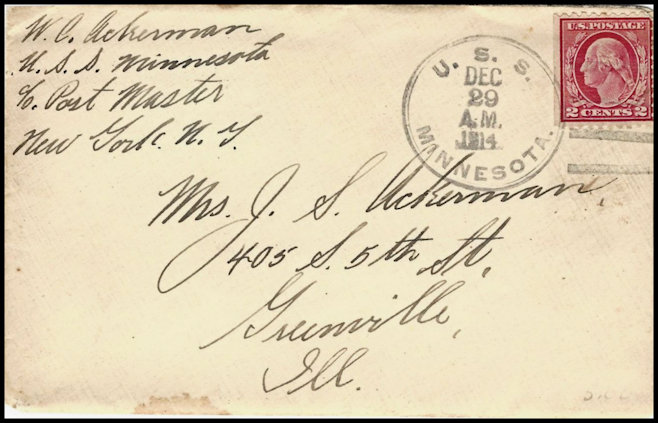 W. C. Ackerman
U. S. S. Minnesota
c/o. Post Master
New York. N. Y.
U. S. S.
DEC
29
A.M.
1914
MINNESOTA.
U.S. POSTAGE
2 CENTS 2
Mrs. J. S. Ackerman,
405 S. 5th St,
Greenville,
Ill.